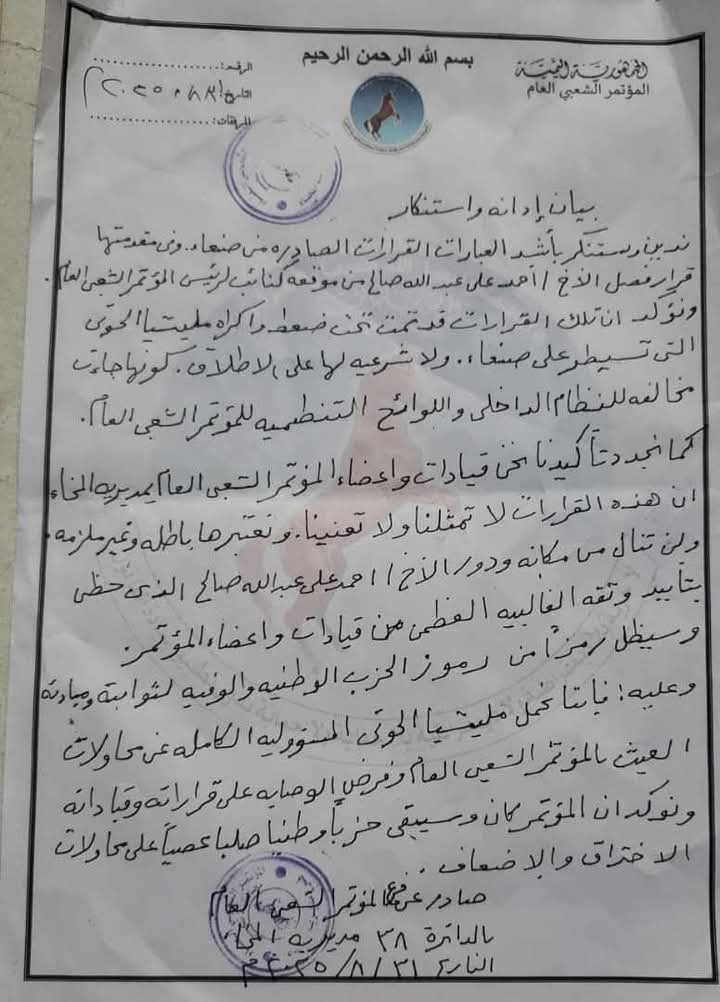 بسم الله الرحمن الرحيم
الجمهورية اليمنية
المؤتمر الشعبي العام
الرقم:
التاريخ
المرفقات:
بيان إدانه واستنكار
ندين ونستنكر بأشد العبارات القرارات الصادره من صنعاء. وفي مقدمتها
قرار فصل الأخ / أحمد علي عبد الله صالح من موقعه كنائب لرئيس المؤتمر الشعبي العام.
ونؤكد ان تلك القرارات قد تمت تحت ضغط واكراه مليشيا الحوثي
التي تسيطر على صنعاء. ولا شرعيه لها على الاطلاق. كونها جاءت
مخالفه للنظام الداخلي واللوائح التنظيميه للمؤتمر الشعبي العام.
كما نجدد تأكيدنا نحن قيادات واعضاء المؤتمر الشعبي العام بمديريه المخاء
ان هذه القرارات لا تمثلنا ولا تعنينا. ونعتبرها باطله وغير ملزمه.
ولن تنال من مكانه ودور الأخ / احمد علي عبد الله صالح الذي حظي
بتأييد وثقه الغالبيه العظمى من قيادات واعضاء المؤتمر.
وسيظل رمزاً من رموز الحزب الوطنيه والوفيه لثوابته ومبادئه
وعليه: فإننا نحمل مليشيا الحوثي المسؤوليه الكامله عن محاولات
العبث بالمؤتمر الشعبي العام وفرض الوصايه على قراراته وقياداته
ونوكد ان المؤتمر كان وسيبقى حزباً وطنيا صلبا عصياً على محاولات
الاختراق والإضعاف.
صادر عن فرع المؤتمر الشعبي العام
بالدائرة ٣٨ مديريه المخاء
التاريخ ٣١/٨/٢٠٢٥م